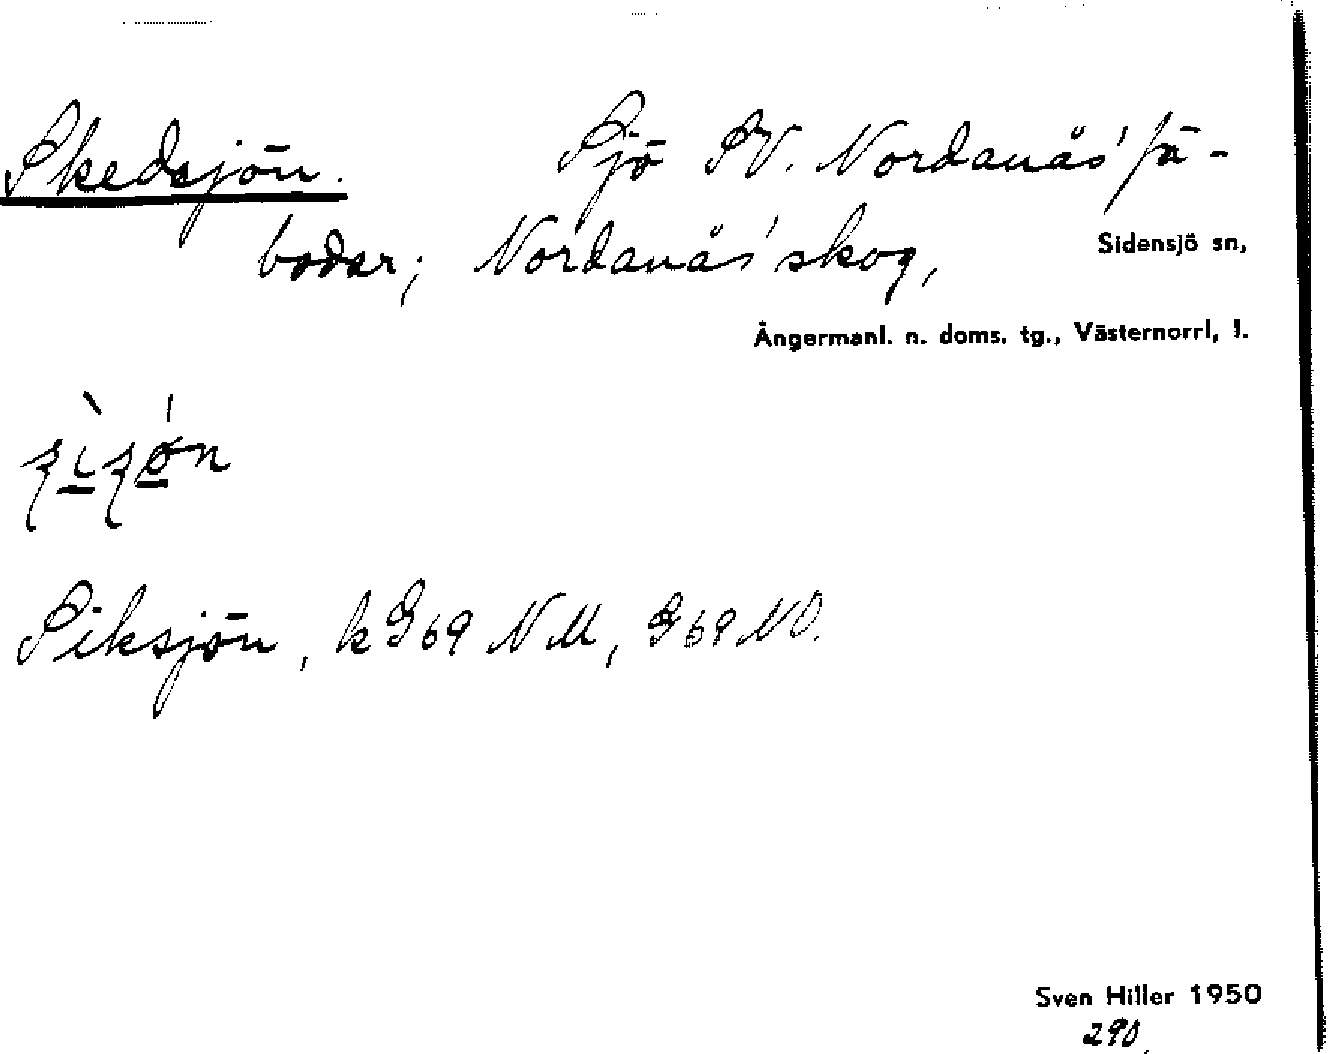 Skedsjön. Sjö SV. Nordanås' fä-
bodar; Nordanås' skog, Sidensjö sn,
Ångermanl. n. doms. tg., Västernorrl, l.
Siksjön, k G69 NM, G69 NO.
Sven Hiller 1950
290